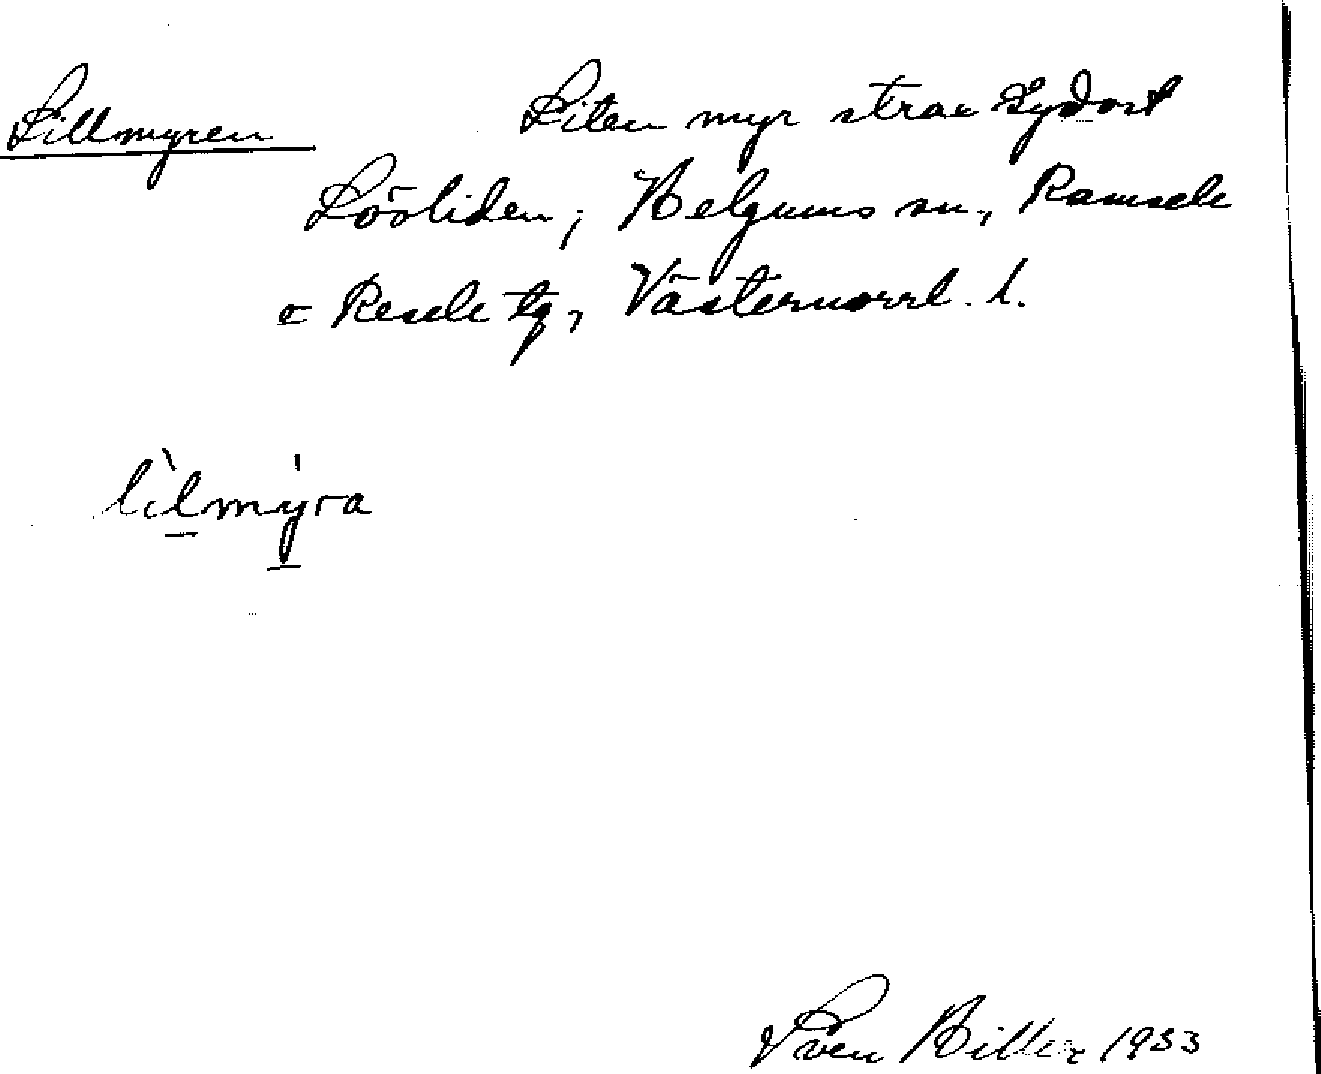 Lillmyren Liten myr strax sydost
Lövliden, Helgums sn, Ramsele
o Resele tg, Västernorrl. l.
lìlmy̍ra
Sven Hiller 1933